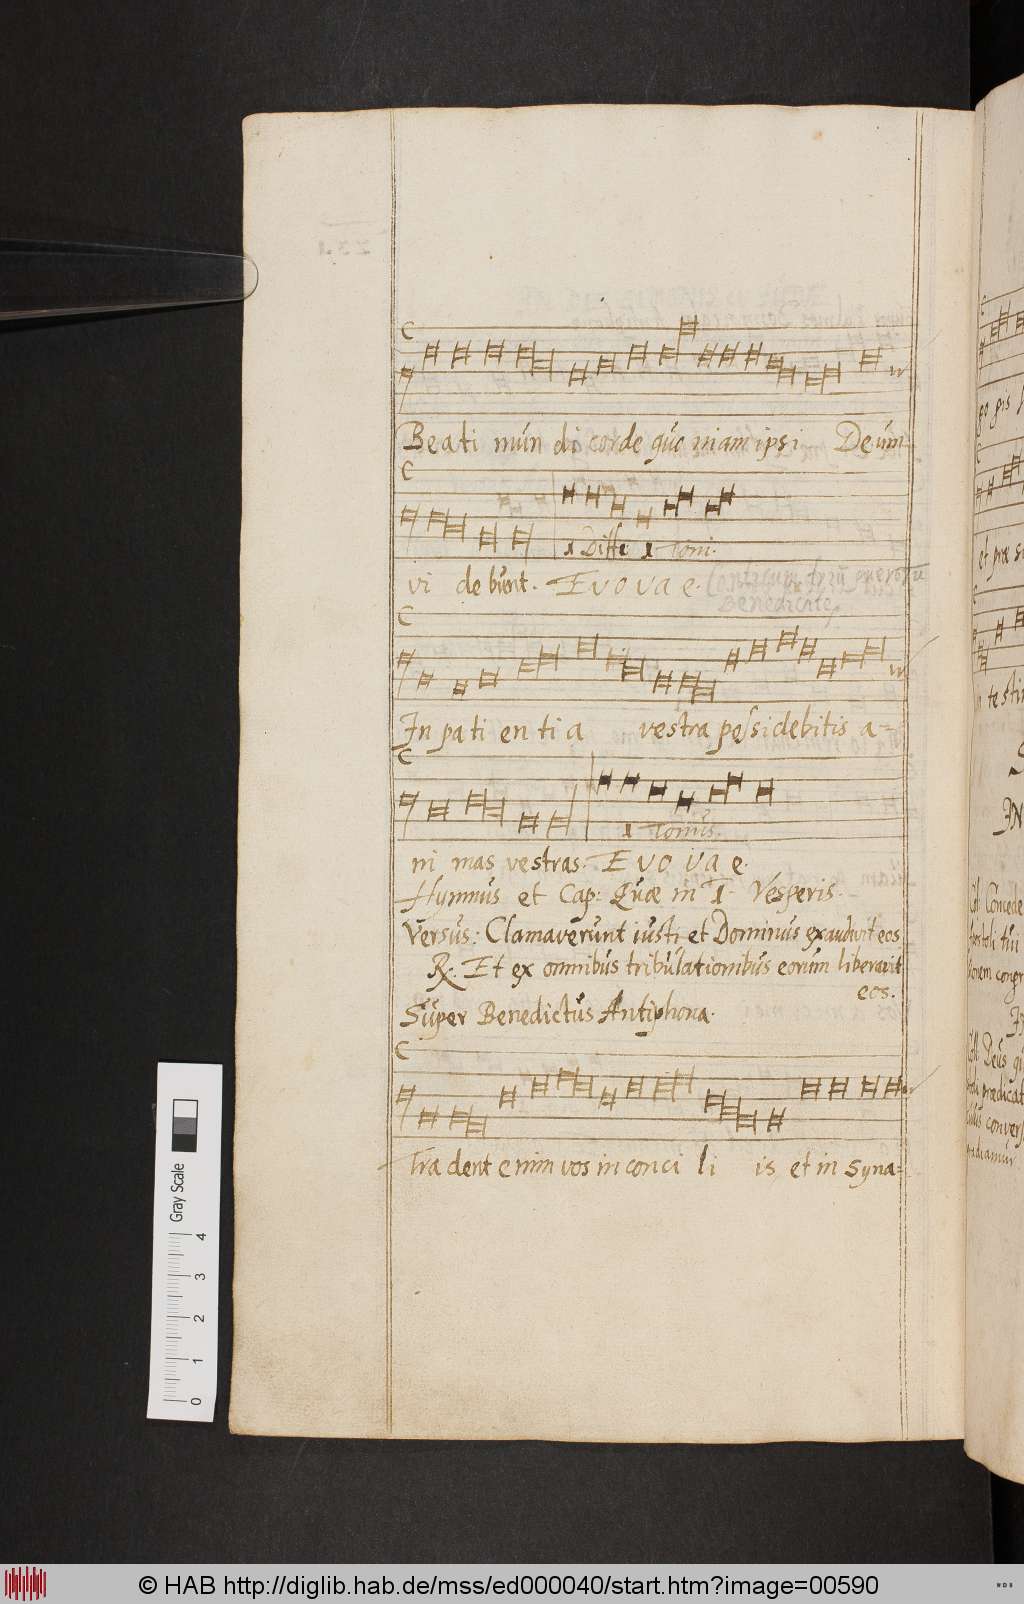 Beati mun di corde quo niam ipsi Deum
1 Diffe 1 Toni.
vi de bunt. E v o v a e.
Benedicite,
In pa ti en ti a vestra possidebitis a=
1 Tonus.
ni mas vestras. E v o v a e.
Hymnus et Cap: Quæ in 1. Vesperis.
Versus: Clamaverunt iusti et Dominus exaudivit eos
R. Et ex omnibus tribulationibus eorum liberavit
eos.
Super Benedictus Antiphona.
Tra dent enim vos in conci li is et in syna=
Gray Scale
4
3
2
1
0
© HAB http://diglib.hab.de/mss/ed000040/start.htm?image=00590